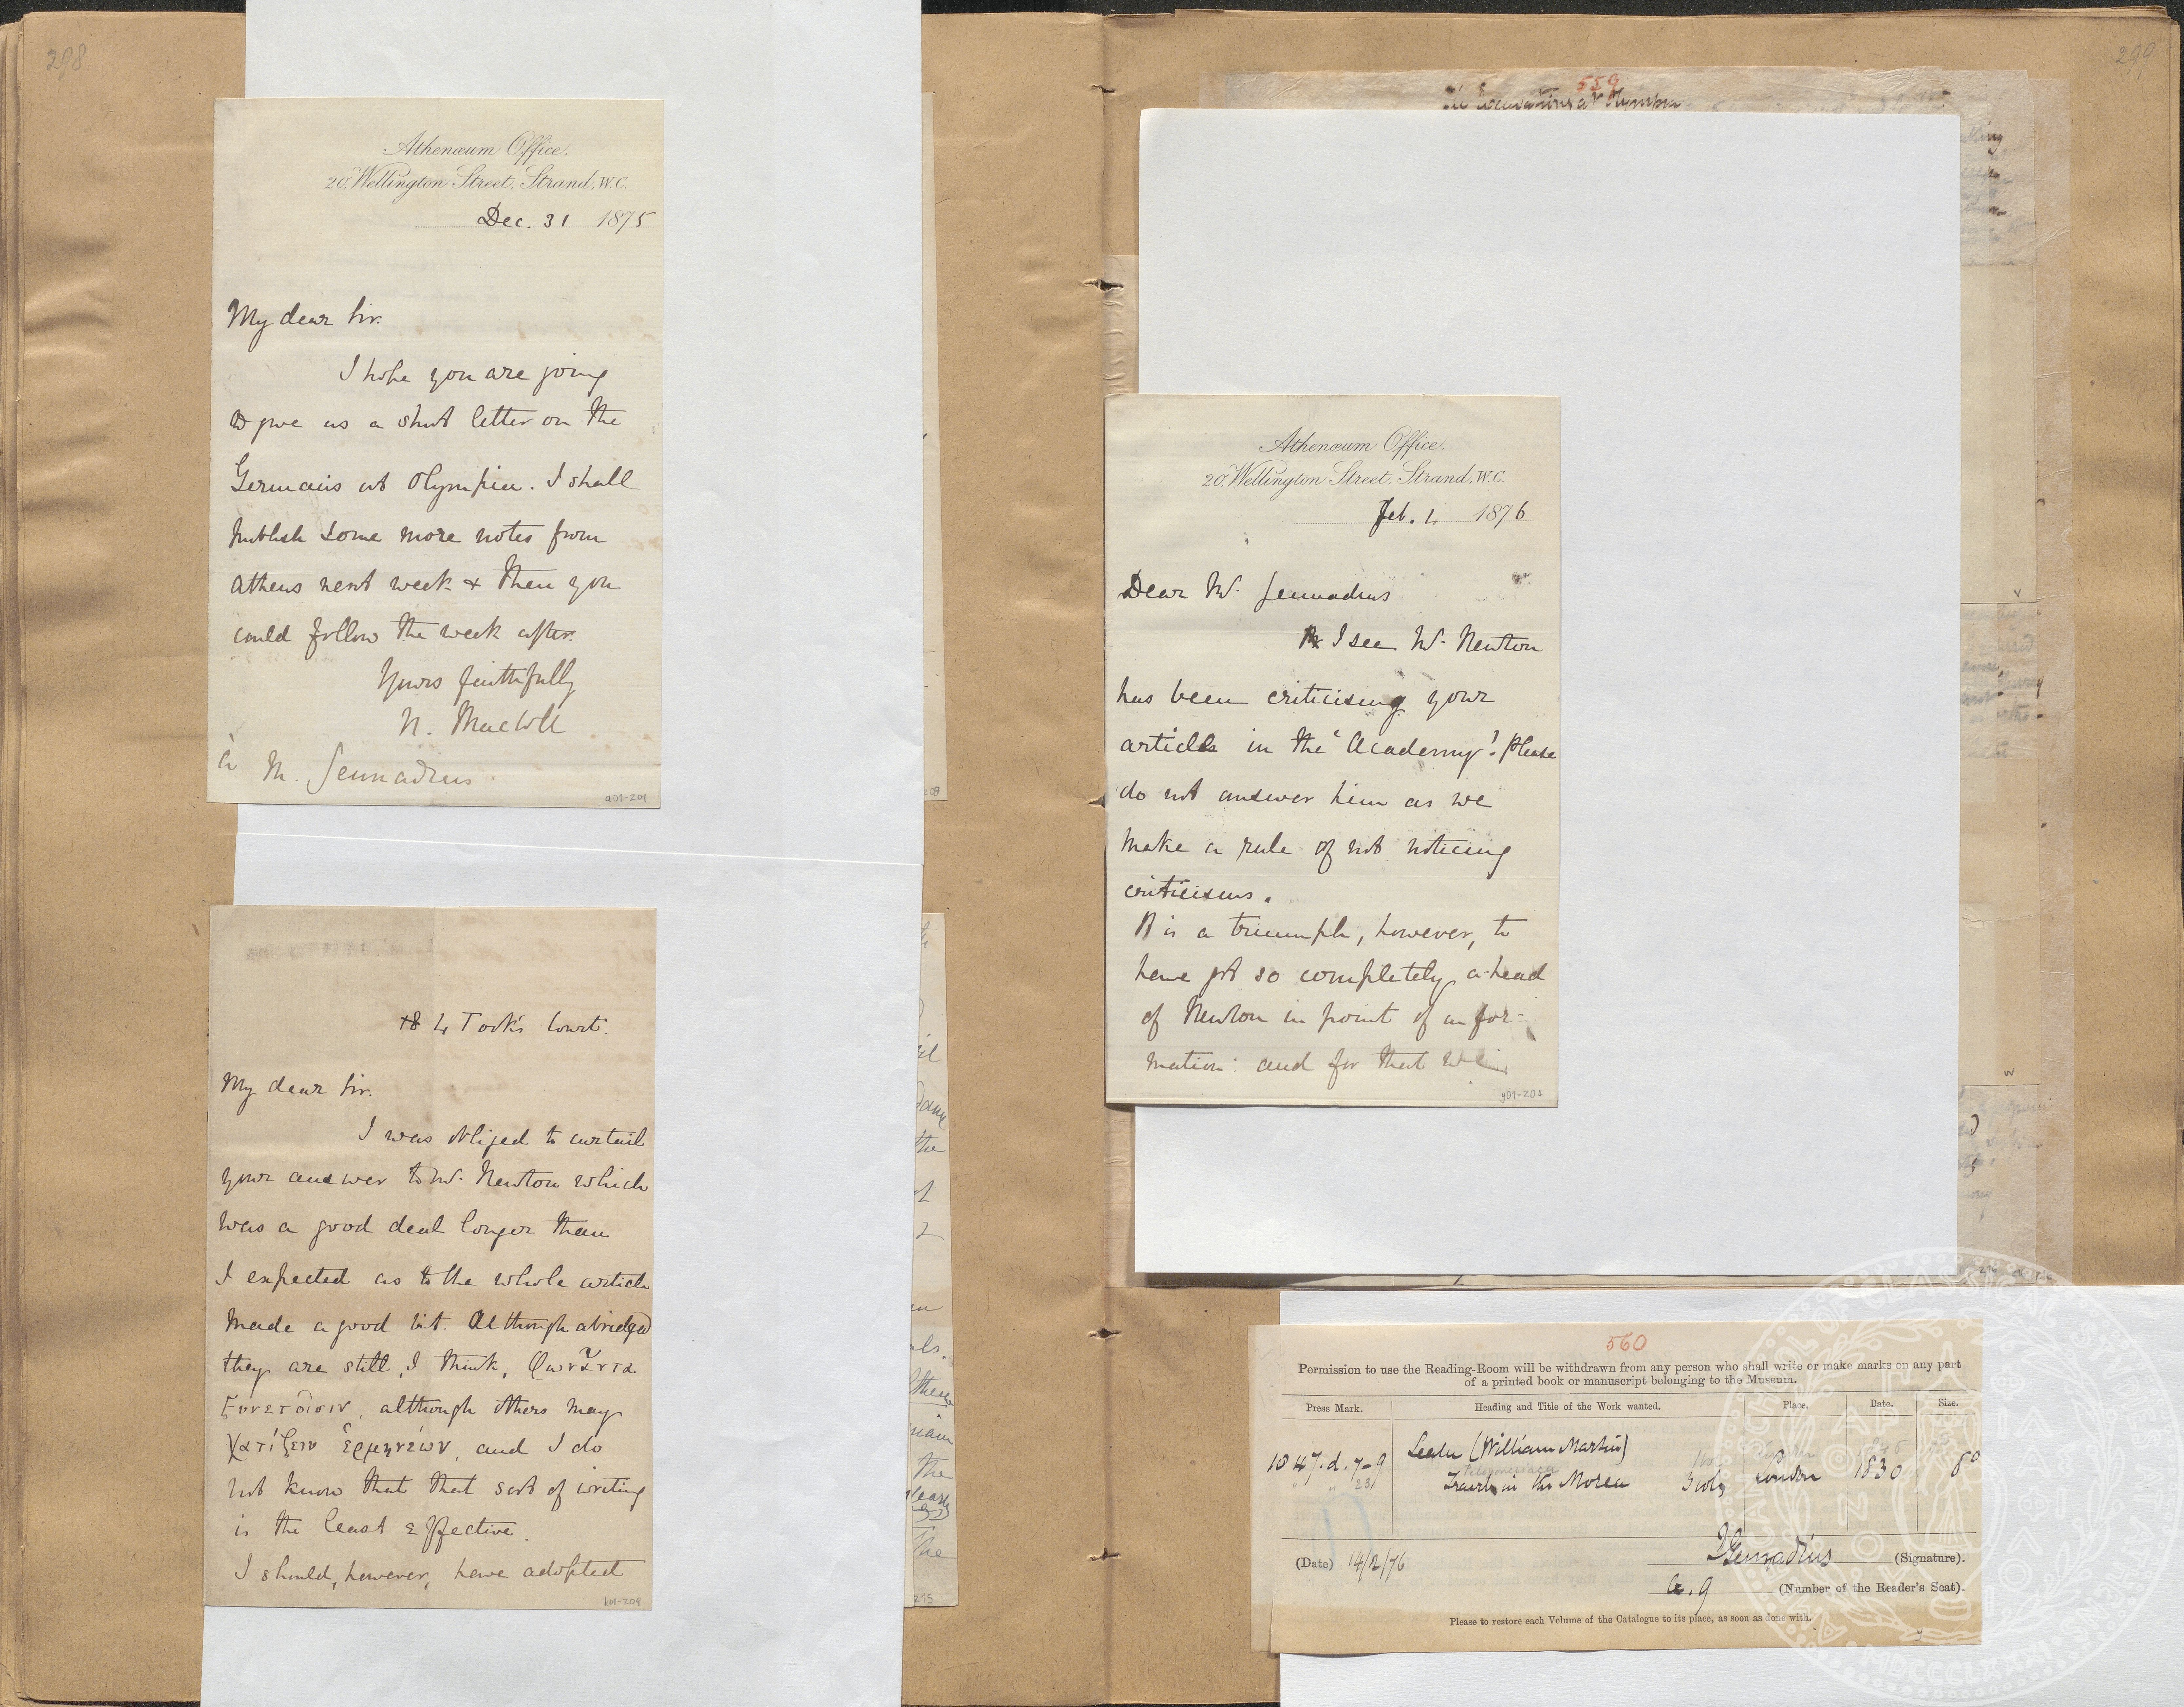 298
Athenæum Office.
20, Wellington Street, Strand, W.C.
Dec. 31 1875
My dear Sir.
I hope you are going
to give us a short letter on the
Germans at Olympia. I shall
publish some more notes from
Athens next week & then you
could follow the week after.
Yours faithfully
N. MacColl
à M. Gennadius.
901-201
4 Took's Court.
My dear Sir.
I was obliged to curtail
your answer to Mr. Newton which
was a good deal longer than
I expected as to the whole article
made a good bit. Although abridged
they are still, I think, φωνᾶντα
ξυνετοῖσιν, although others may
χατίζειν ἑρμηνέων, and I do
not know that that sort of writing
is the least effective.
I should, however, have adopted
209
299
559
The Excavations at Olympia
Athenæum Office.
20, Wellington Street, Strand, W.C.
Feb. 1. 1876
Dear Mr. Gennadius
I see Mr. Newton
has been criticising your
article in the "Academy". Please
do not answer him as we
make a rule of not noticing
criticisms.
It is a triumph, however, to
have got so completely a-head
of Newton in point of infor-
mation: and for that
901-204
560
Permission to use the Reading-Room will be withdrawn from any person who shall write or make marks on any part
of a printed book or manuscript belonging to the Museum.
Press Mark. Heading and Title of the Work wanted. Place. Date. Size.
1047.d.7-9 Leake (William Martin)
Peloponnesiaca
Travels in the Morea 3 vols London 1830 8o
(Date) 14/2/76 J Gennadius (Signature).
G. 9 (Number of the Reader's Seat).
Please to restore each Volume of the Catalogue to its place, as soon as done with.
295
MDCCCLXXXI